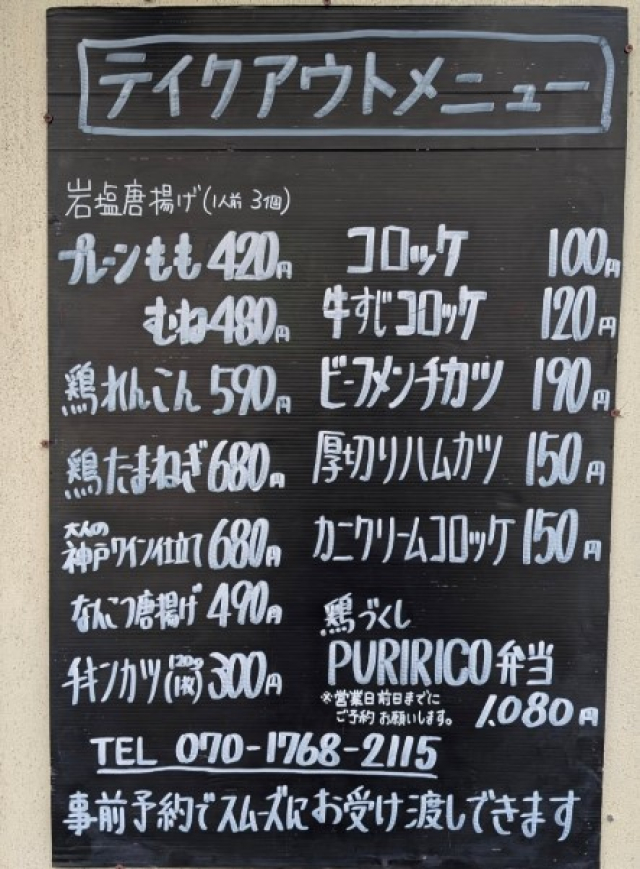 テイクアウトメニュー
岩塩唐揚げ(1人前 3個)
プレーンもも 420円
むね 480円
鶏れんこん 590円
鶏たまねぎ 680円
大人の
神戸ワイン仕立て 680円
なんこつ唐揚げ 490円
チキンカツ(120g 1枚) 300円
コロッケ 100円
牛すじコロッケ 120円
ビーフメンチカツ 190円
厚切りハムカツ 150円
カニクリームコロッケ 150円
鶏づくし
PURIRICO弁当
※営業日前日までに
ご予約お願いします。
1,080円
TEL 070-1768-2115
事前予約でスムーズにお受け渡しできます